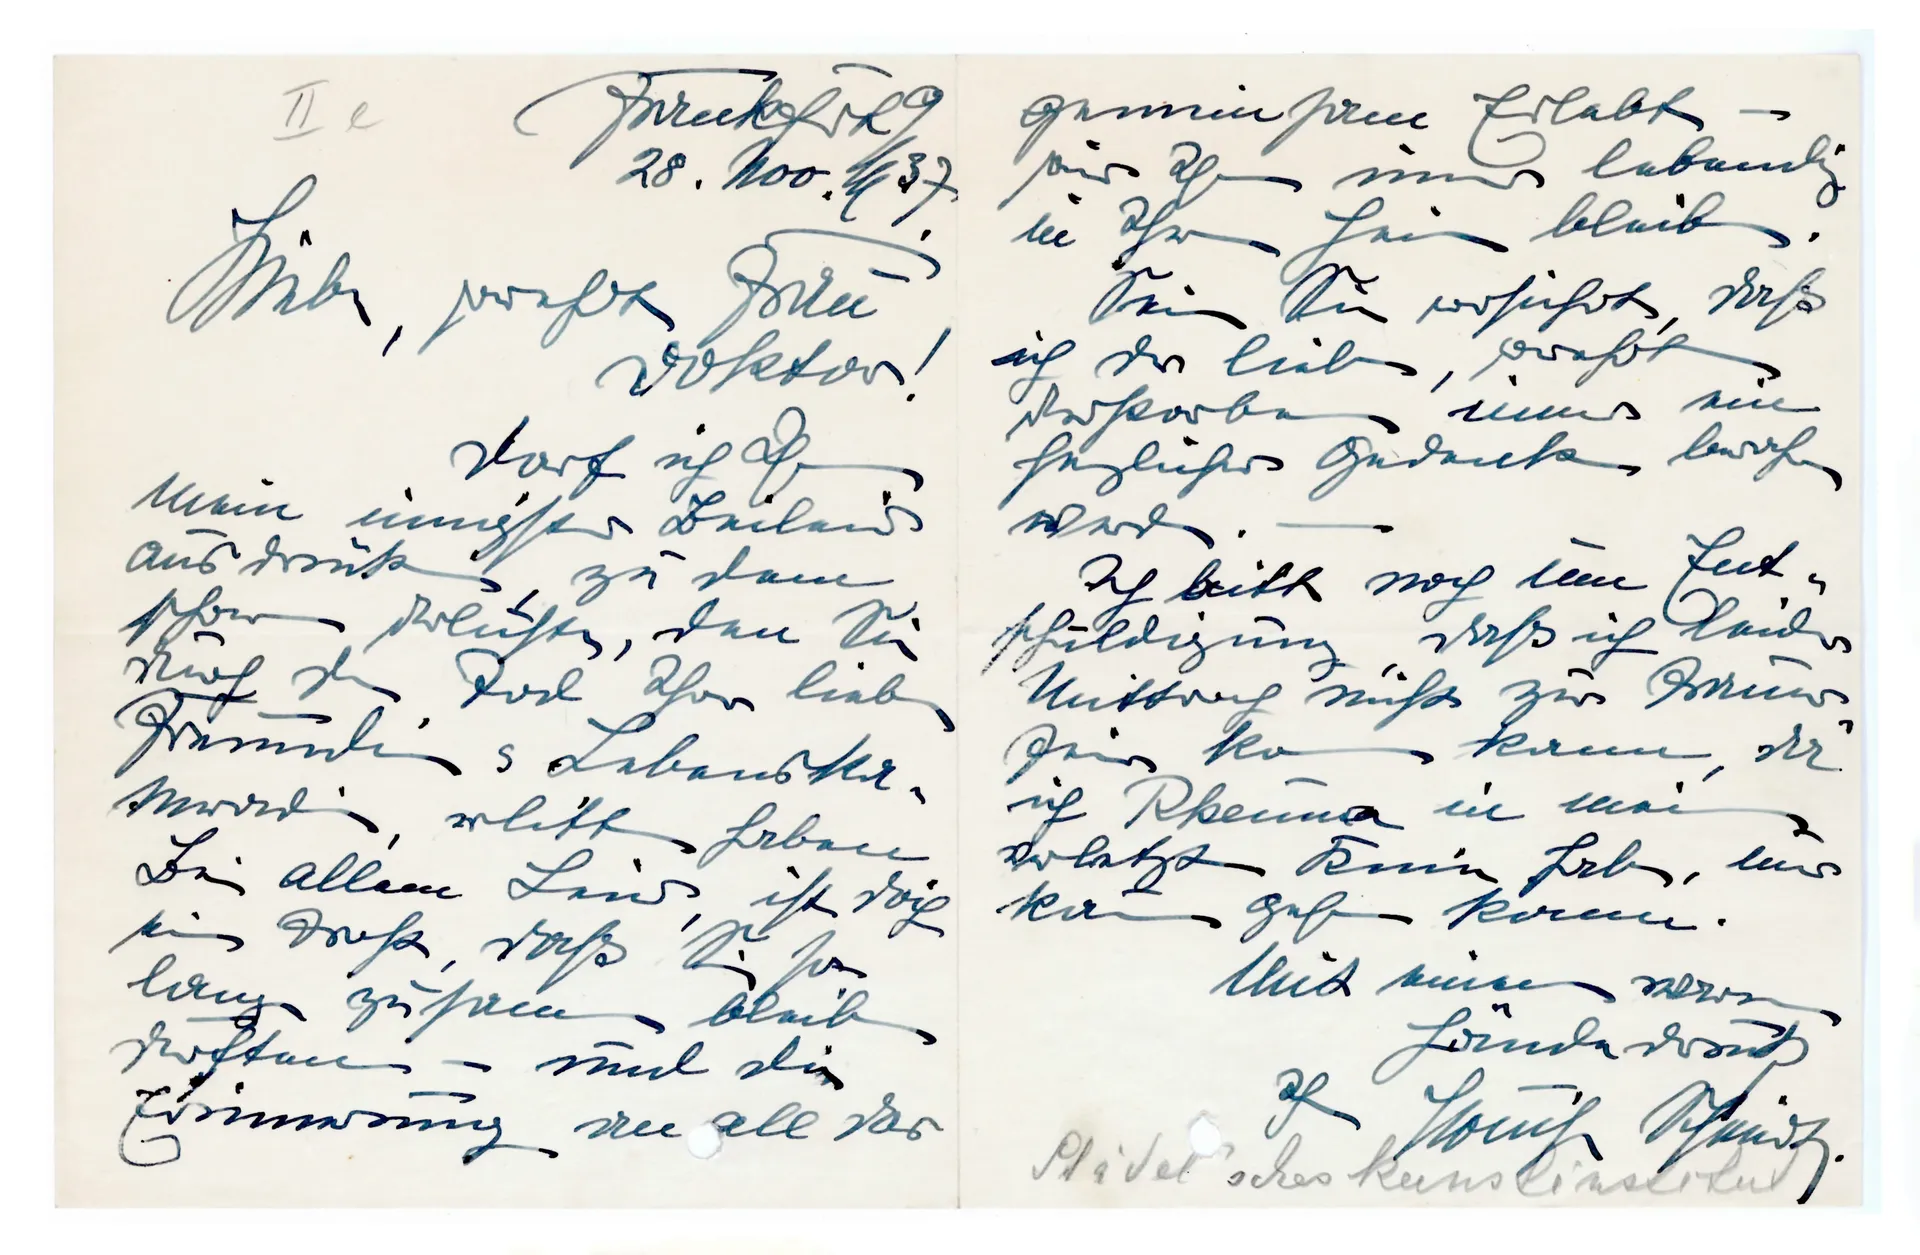 II e
Frankfurt 9
28. Nov. 1937.
Liebe, verehrte Frau
Doktor!
Darf ich Ihnen
mein innigstes Beileid
ausdrücken, zu dem
schweren Verluste, den Sie
durch den Tod Ihrer lieben
Freundin & Lebenska-
meradin, erlitten haben
Bei allem Leid, ist doch
ein Trost, daß Sie so
lange zusammen bleiben
durften – und die
Erinnerung an all das
gemeinsam Erlebte –
wird Ihnen immer lebendig
in Ihrem Sein bleiben.
Seien Sie versichert, daß
ich der lieben, verehrten
Verstorbenen immer ein
herzliches Gedenken bewahren
werde. —
Ich bitte noch um Ent-
schuldigung, daß ich leider
Mittwoch nicht zur Trauer-
feier kommen kann, da
ich Rheuma in meinem
verletzten Knie habe, und
kaum gehen kann.
Mit einem warmen
Händedruck
Ihr Schmidt.
Städel'sches Kunstinstitut